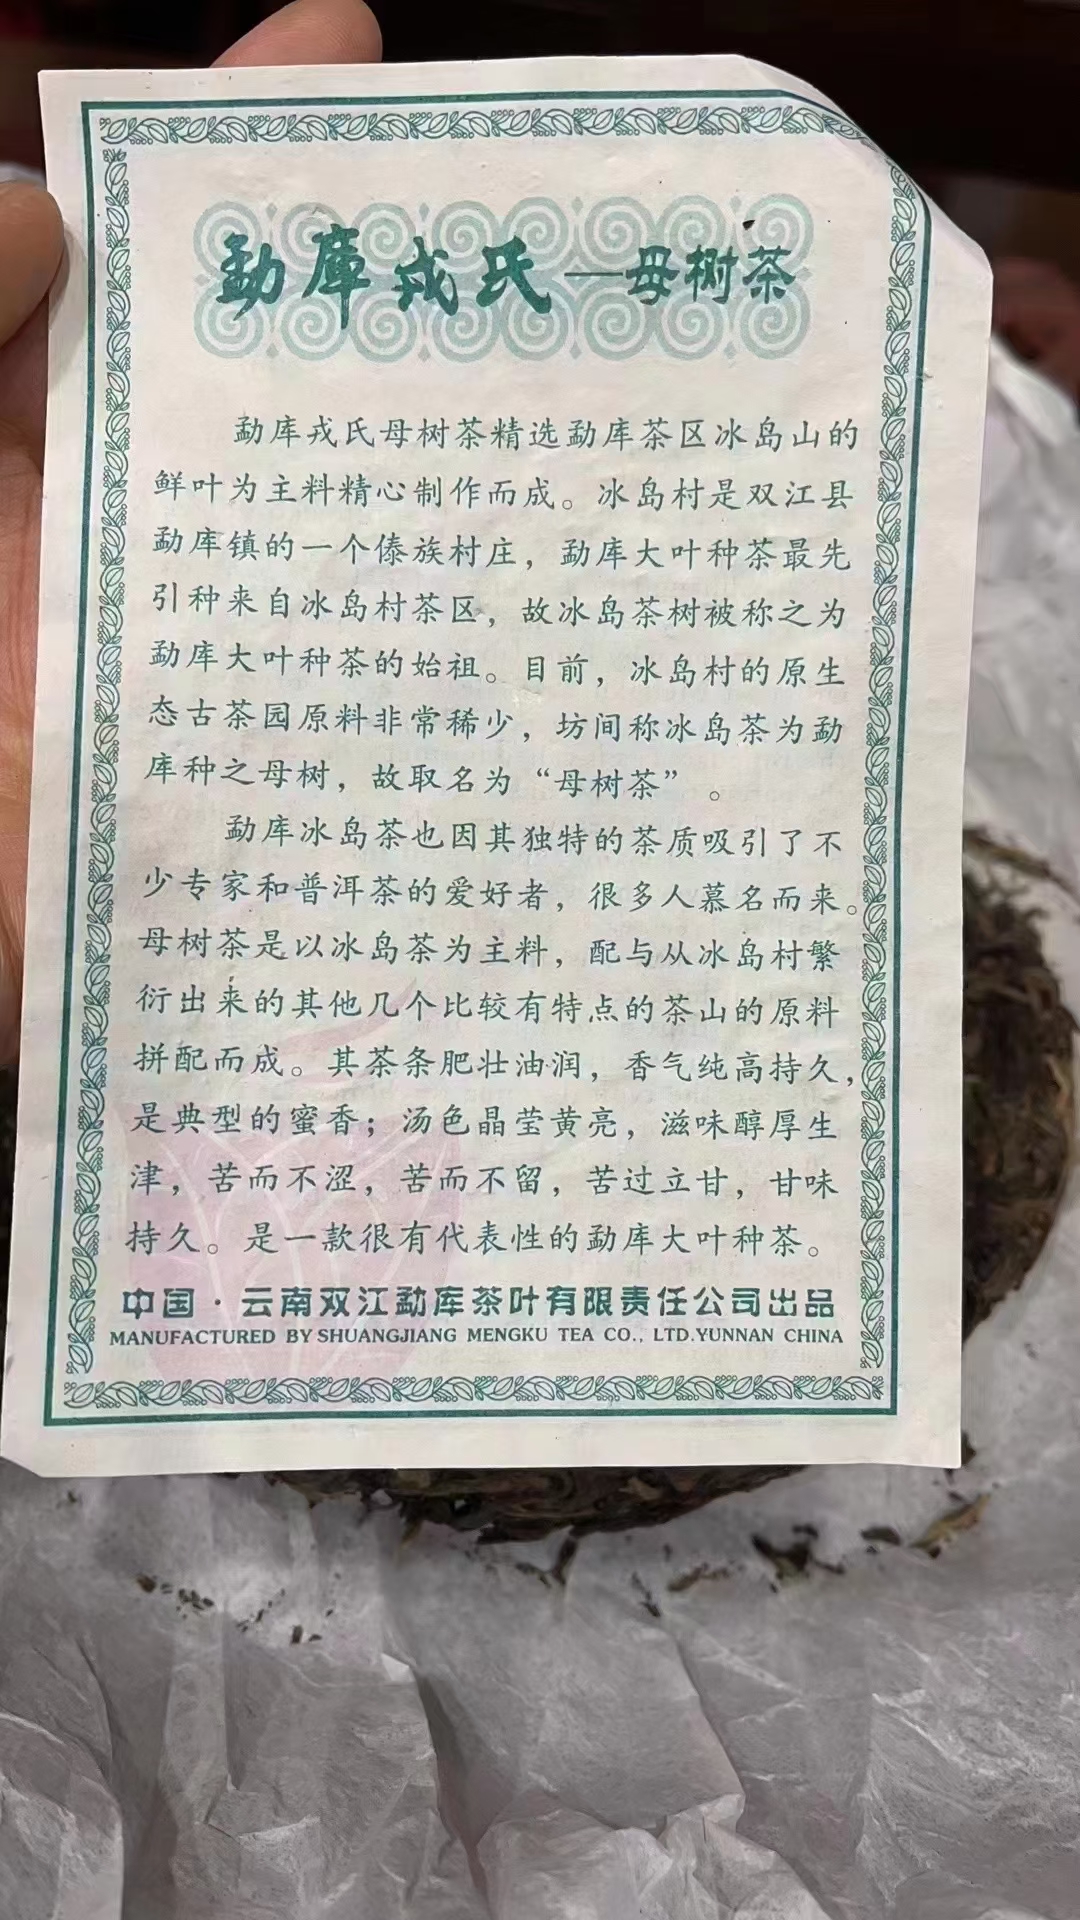 勐库戎氏—母树茶
勐库戎氏母树茶精选勐库茶区冰岛山的
鲜叶为主料精心制作而成。冰岛村是双江县
勐库镇的一个傣族村庄，勐库大叶种茶最先
引种来自冰岛村茶区，故冰岛茶树被称之为
勐库大叶种茶的始祖。目前，冰岛村的原生
态古茶园原料非常稀少，坊间称冰岛茶为勐
库种之母树，故取名为“母树茶”。
勐库冰岛茶也因其独特的茶质吸引了不
少专家和普洱茶的爱好者，很多人慕名而来。
母树茶是以冰岛茶为主料，配与从冰岛村繁
衍出来的其他几个比较有特点的茶山的原料
拼配而成。其茶条肥壮油润，香气纯高持久，
是典型的蜜香；汤色晶莹黄亮，滋味醇厚生
津，苦而不涩，苦而不留，苦过立甘，甘味
持久。是一款很有代表性的勐库大叶种茶。
中国·云南双江勐库茶叶有限责任公司出品
MANUFACTURED BY SHUANGJIANG MENGKU TEA CO., LTD.YUNNAN CHINA